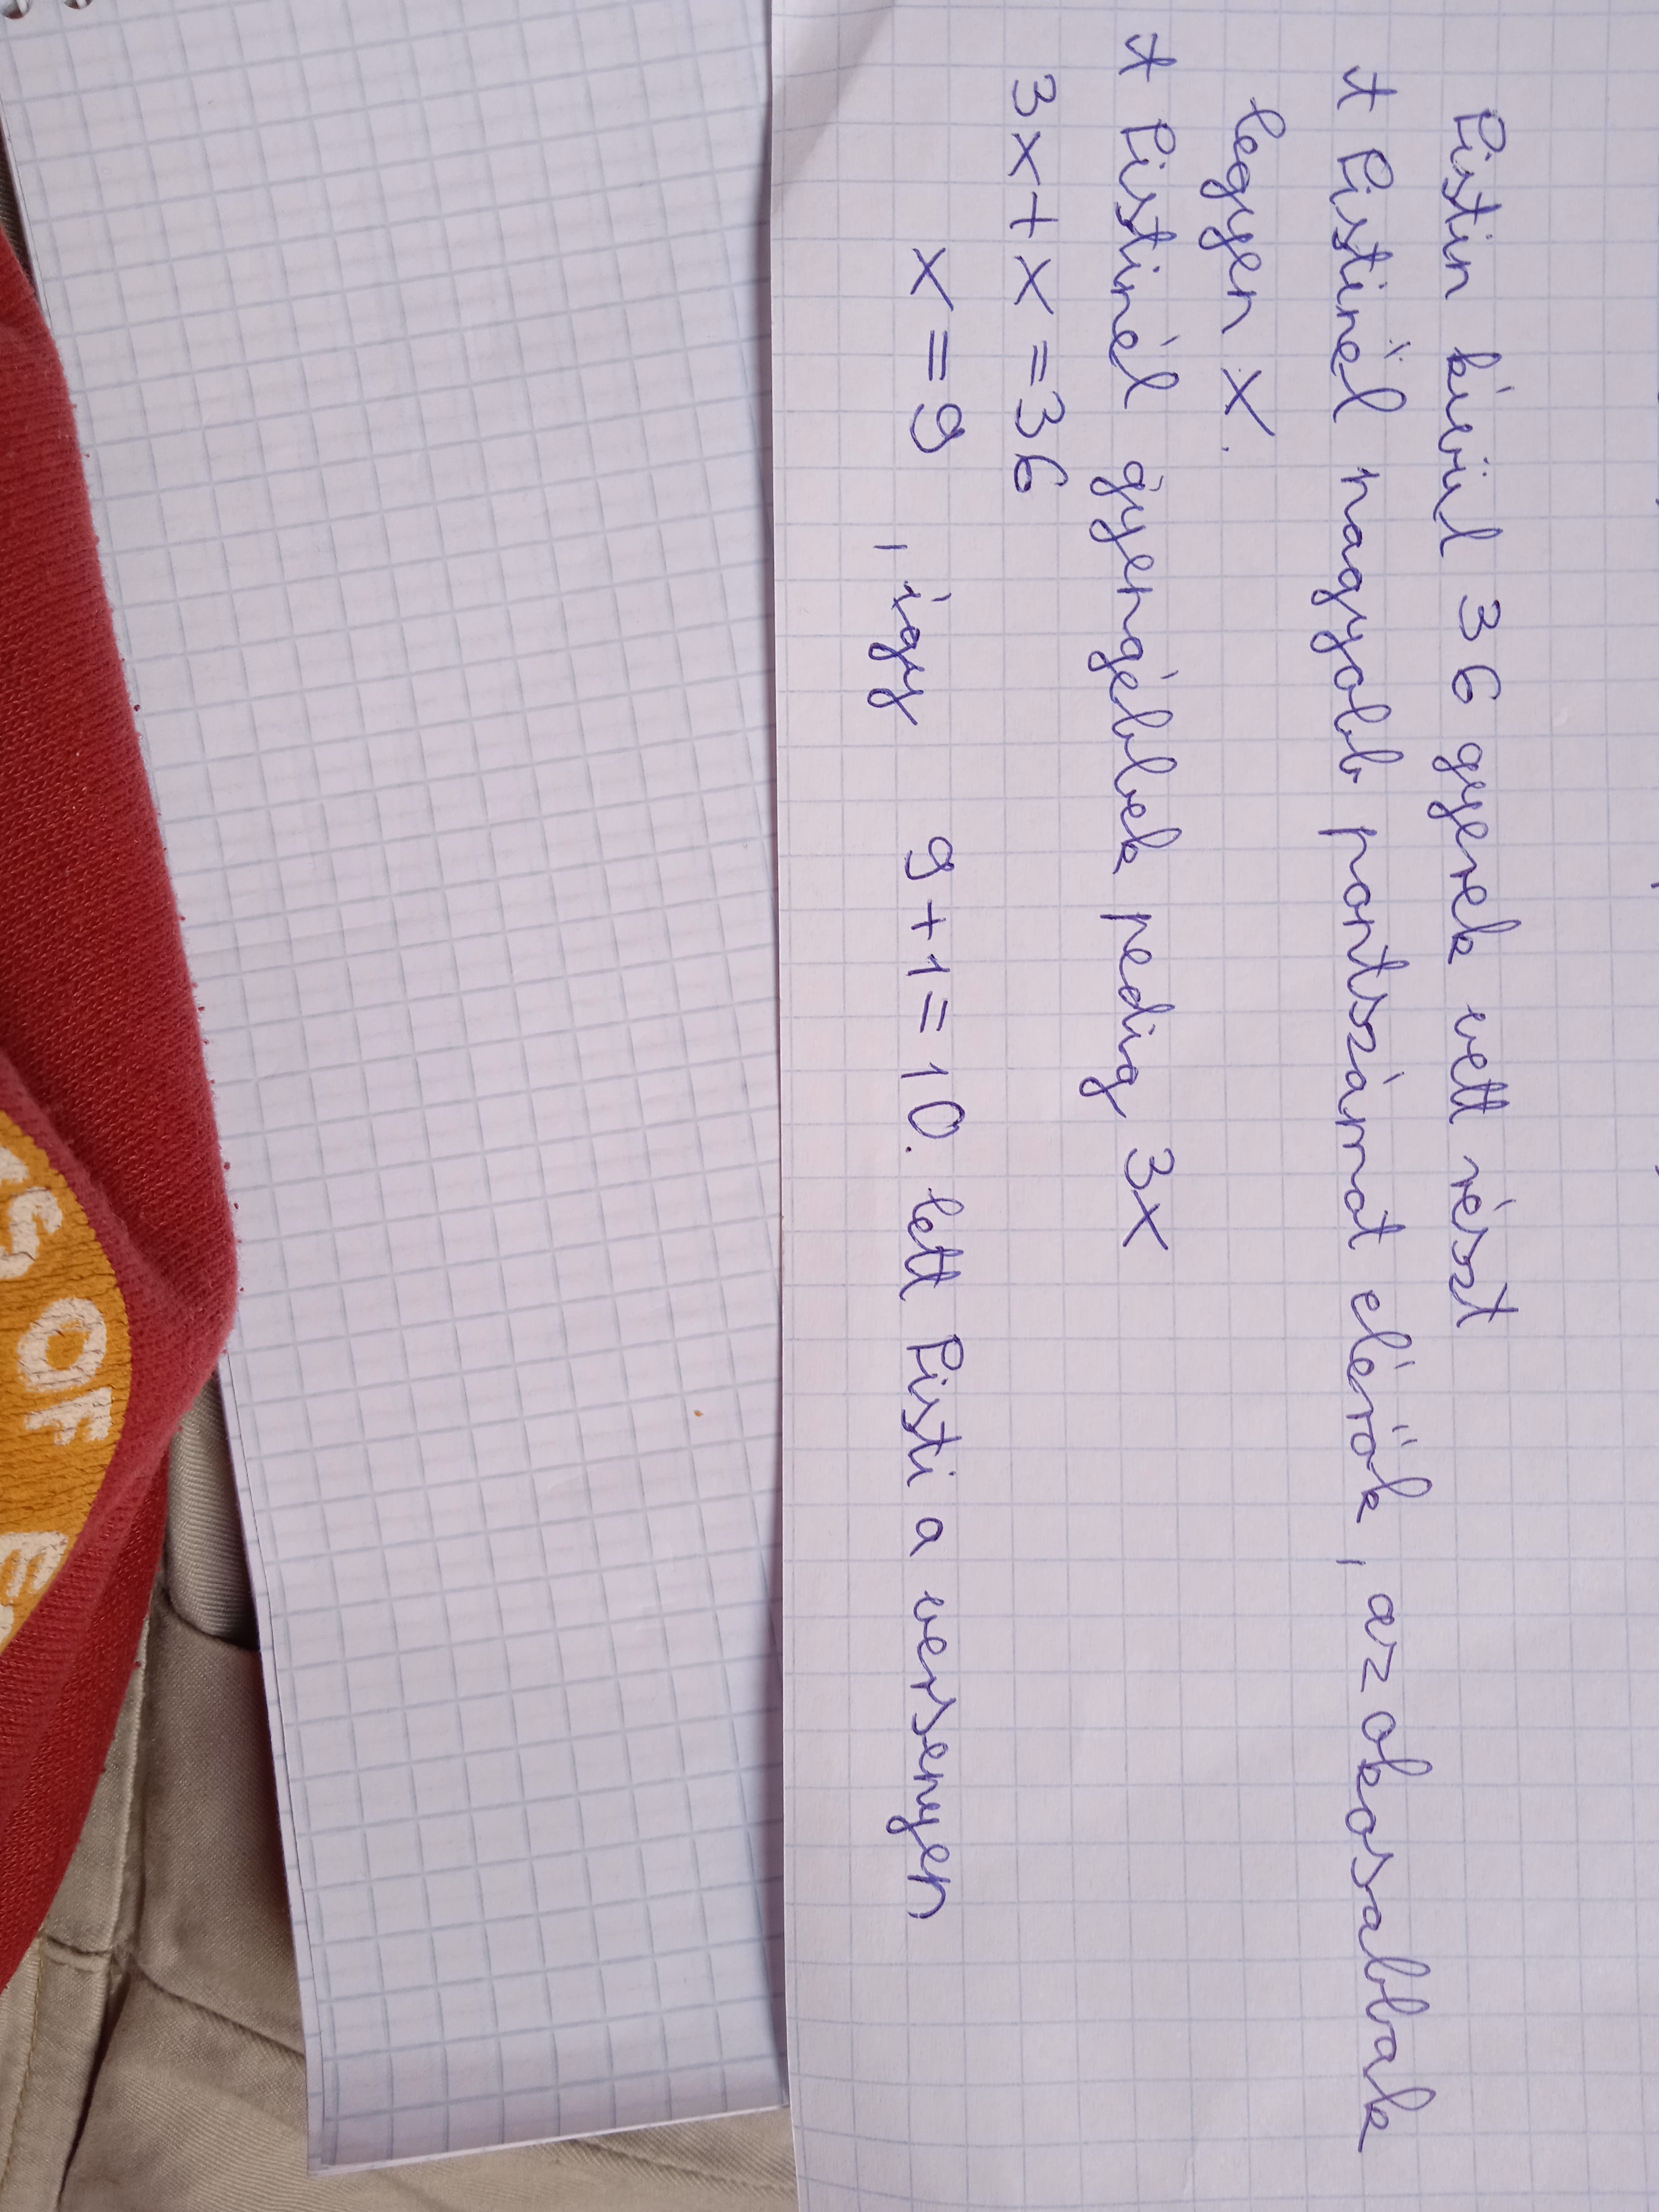 Pistin kívül 36 gyerek vett részt
A Pistinél nagyobb pontszámot elérők, az okosabbak
legyen X.
A Pistinél gyengébbek pedig 3X
3X+X=36
X=9, így 9+1=10. lett Pisti a versenyen
OF